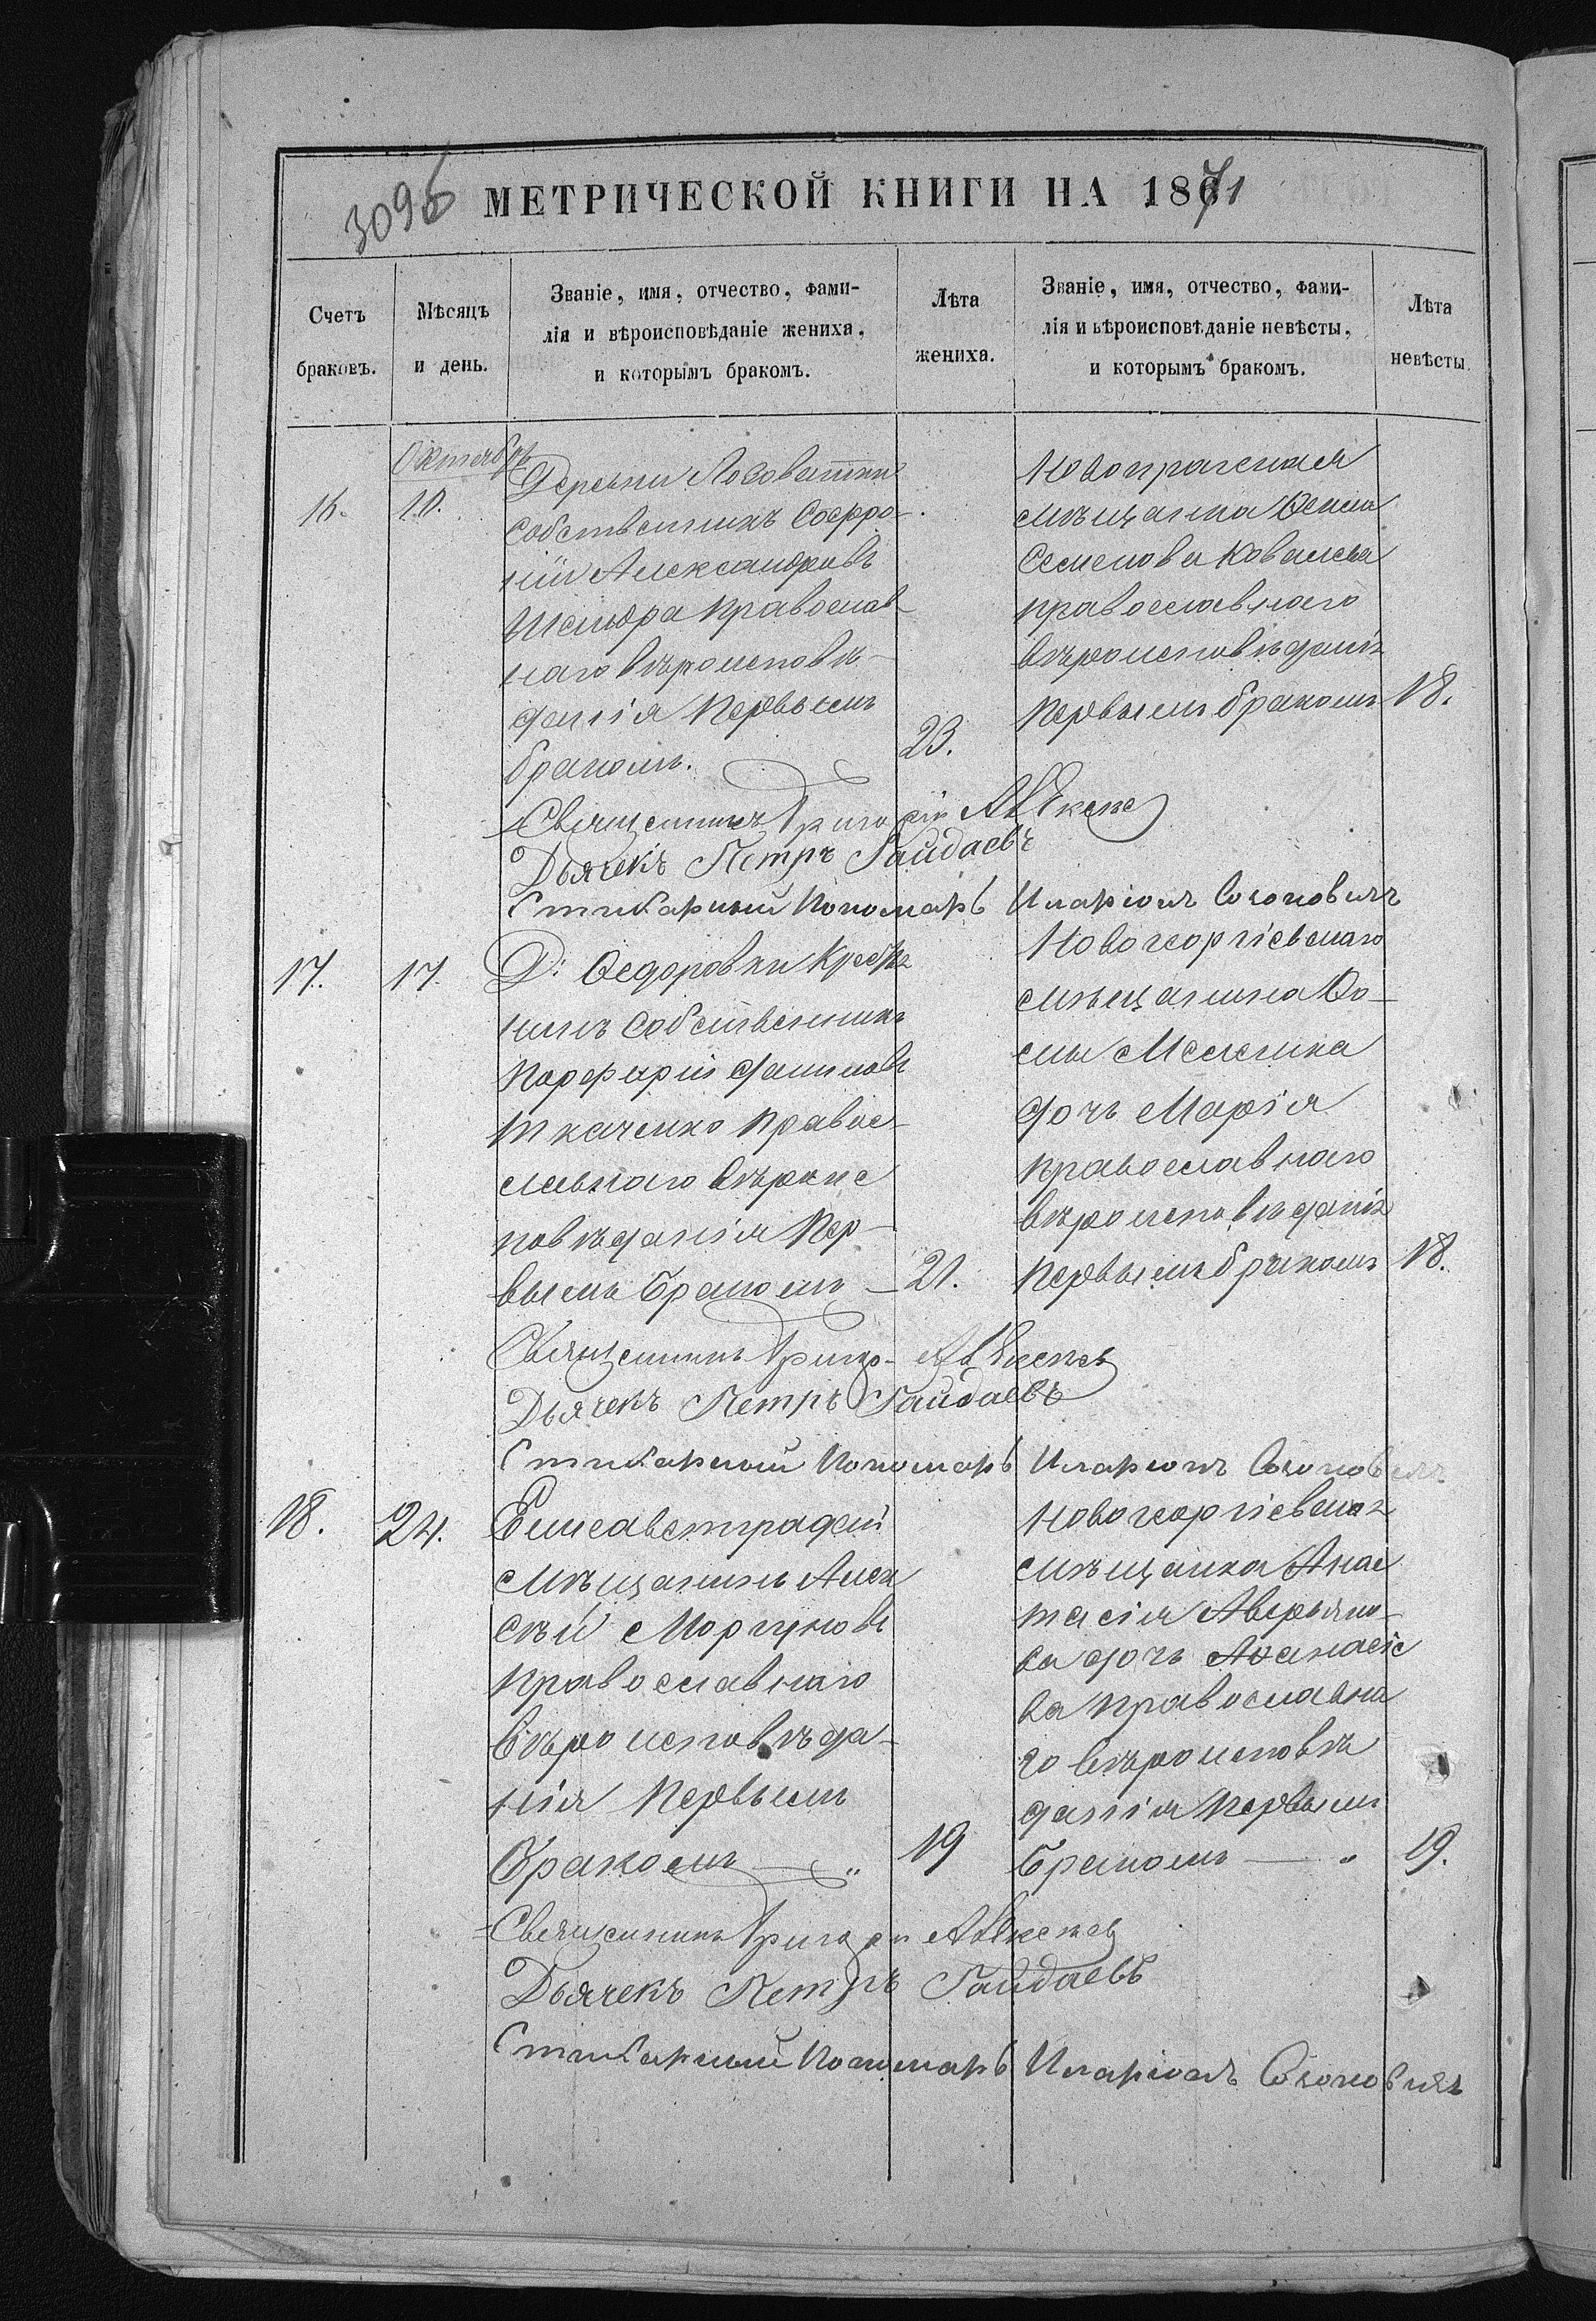 309б
МЕТРИЧЕСКОЙ КНИГИ НА 1871
Счетъ
браковъ.
Мѣсяцъ
и день.
Званіе, имя, отчество, фами-
лія и вѣроисповѣданіе жениха,
и которымъ бракомъ.
Лѣта
жениха.
Званіе, имя, отчество, фами-
лія и вѣроисповѣданіе невѣсты,
и которымъ бракомъ.
Лѣта
невѣсты.
Октябрь
16.
10.
Деревни Лозоватки
собственникъ Софро-
ній Александровъ
Шандра православ-
наго вѣроисповѣ-
данія первымъ
бракомъ.
23.
Новопражская
мѣщанка
Семенова Ковалева
православнаго
вѣроисповѣданія
первымъ бракомъ
18.
Священникъ Григорій
Дьячекъ Петръ Гайдаевъ
Стихарный Пономарь Иларіонъ
17.
17.
Д: Ѳедоровки Кресть
нинъ собственникъ
Порфирій Даниловъ
Ткаченко правос-
лавнаго вѣроис
повѣданія пер-
вымъ бракомъ —
21.
Новогеоргіевскаго
мѣщанина Ѳо-
мы
дочь Марія
православнаго
вѣроисповѣданія
первымъ бракомъ
18.
Священникъ Григо-
Дьячекъ Петръ Гайдаевъ
Стихарный Пономарь Иларіонъ
18.
24.
Елисаветградскій
мѣщанинъ Алек
сѣй Моргуновъ
православнаго
вѣроисповѣда-
нія первымъ
бракомъ — „
19
Новогеоргіевская
мѣщанка Анас
тасія Аверьяно-
ва дочь Аѳанасіе
ва православна
го вѣроисповѣ
данія первымъ
бракомъ — „
19.
Священникъ Григорій
Дьячекъ Петръ Гайдаевъ
Стихарный Пономарь Иларіонъ